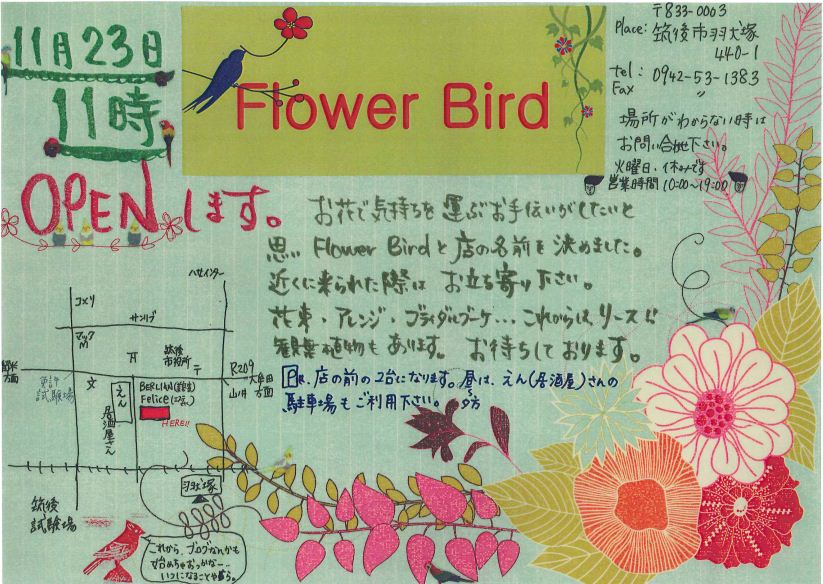 11月23日
11時
OPENします。
Flower Bird
〒833-0003
Place: 筑後市羽犬塚
440-1
tel: 0942-53-1383
Fax 〃
場所がわからない時は
お問い合せ下さい。
火曜日、休みです
営業時間 10:00~19:00
お花で気持ちを運ぶお手伝いがしたいと
思い Flower Birdと店の名前を決めました。
近くに来られた際は お立ち寄り下さい。
花束・アレンジ・ブライダルブーケ… これからは、リースに
観葉植物もあります。 お待ちしております。
P は、店の前の2台になります。昼は、えん(居酒屋)さんの
〜夕方
駐車場もご利用下さい。
八女インター
コメリ
サンリブ
マック
M
筑後
市役所
〒
R209
方面
大牟田
方面
免許
試験場
文
えん
居酒屋さん
BERLIAN
Felice
HERE!!
羽犬塚
筑後
試験場
これから、ブログなんかも
始めちゃおっかな…
いつになることやら。